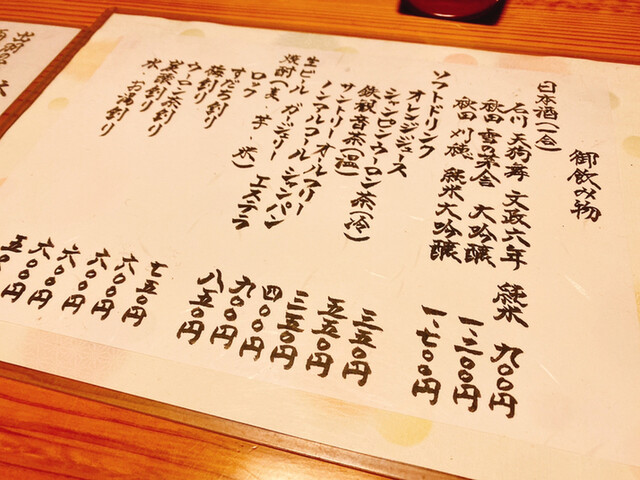 御飲み物
日本酒(一合)
石川 天狗舞 文政六年 純米 九〇〇円
秋田 雪の茅舎 大吟醸 一、三〇〇円
秋田 刈穂 純米大吟醸 一、七〇〇円
ソフトドリンク
オレンジジュース 三五〇円
シャンピンウーロン茶(冷) 五五〇円
鉄観音茶(温) 五五〇円
サントリーオールフリー 三五〇円
ノンアルコールシャンパン 四〇〇円
生ビール ガージェリー エステラ 九〇〇円
焼酎(麦・芋・米) 八五〇円
ロック 七五〇円
すだち割り 六〇〇円
梅割り 六〇〇円
ウーロン茶割り 六〇〇円
炭酸割り 六〇〇円
水・お湯割り 五〇〇円